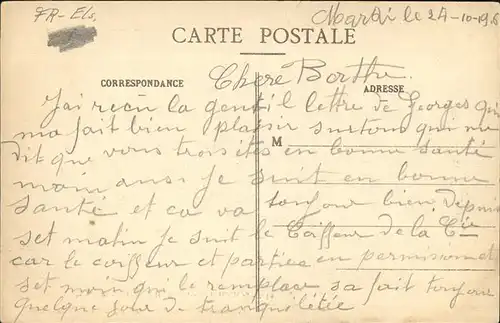 FR-Els.
Mardi le 24-10-
CARTE POSTALE
CORRESPONDANCE
Chere Berthe.
ADRESSE
J'ai recu la gentil lettre de Georges qui
ma fait bien plaisir surtous qui me
M
dit que vous trois êtes en bonne santé
moin ausi je suit en bonne
santé et ca va toujour bien depuis
set matin je suit le Coiffeur de la Cie
car le coiffeur et partie en permission et
set moin qui le remplace sa fait toujour
quelque jour de tranquilitée